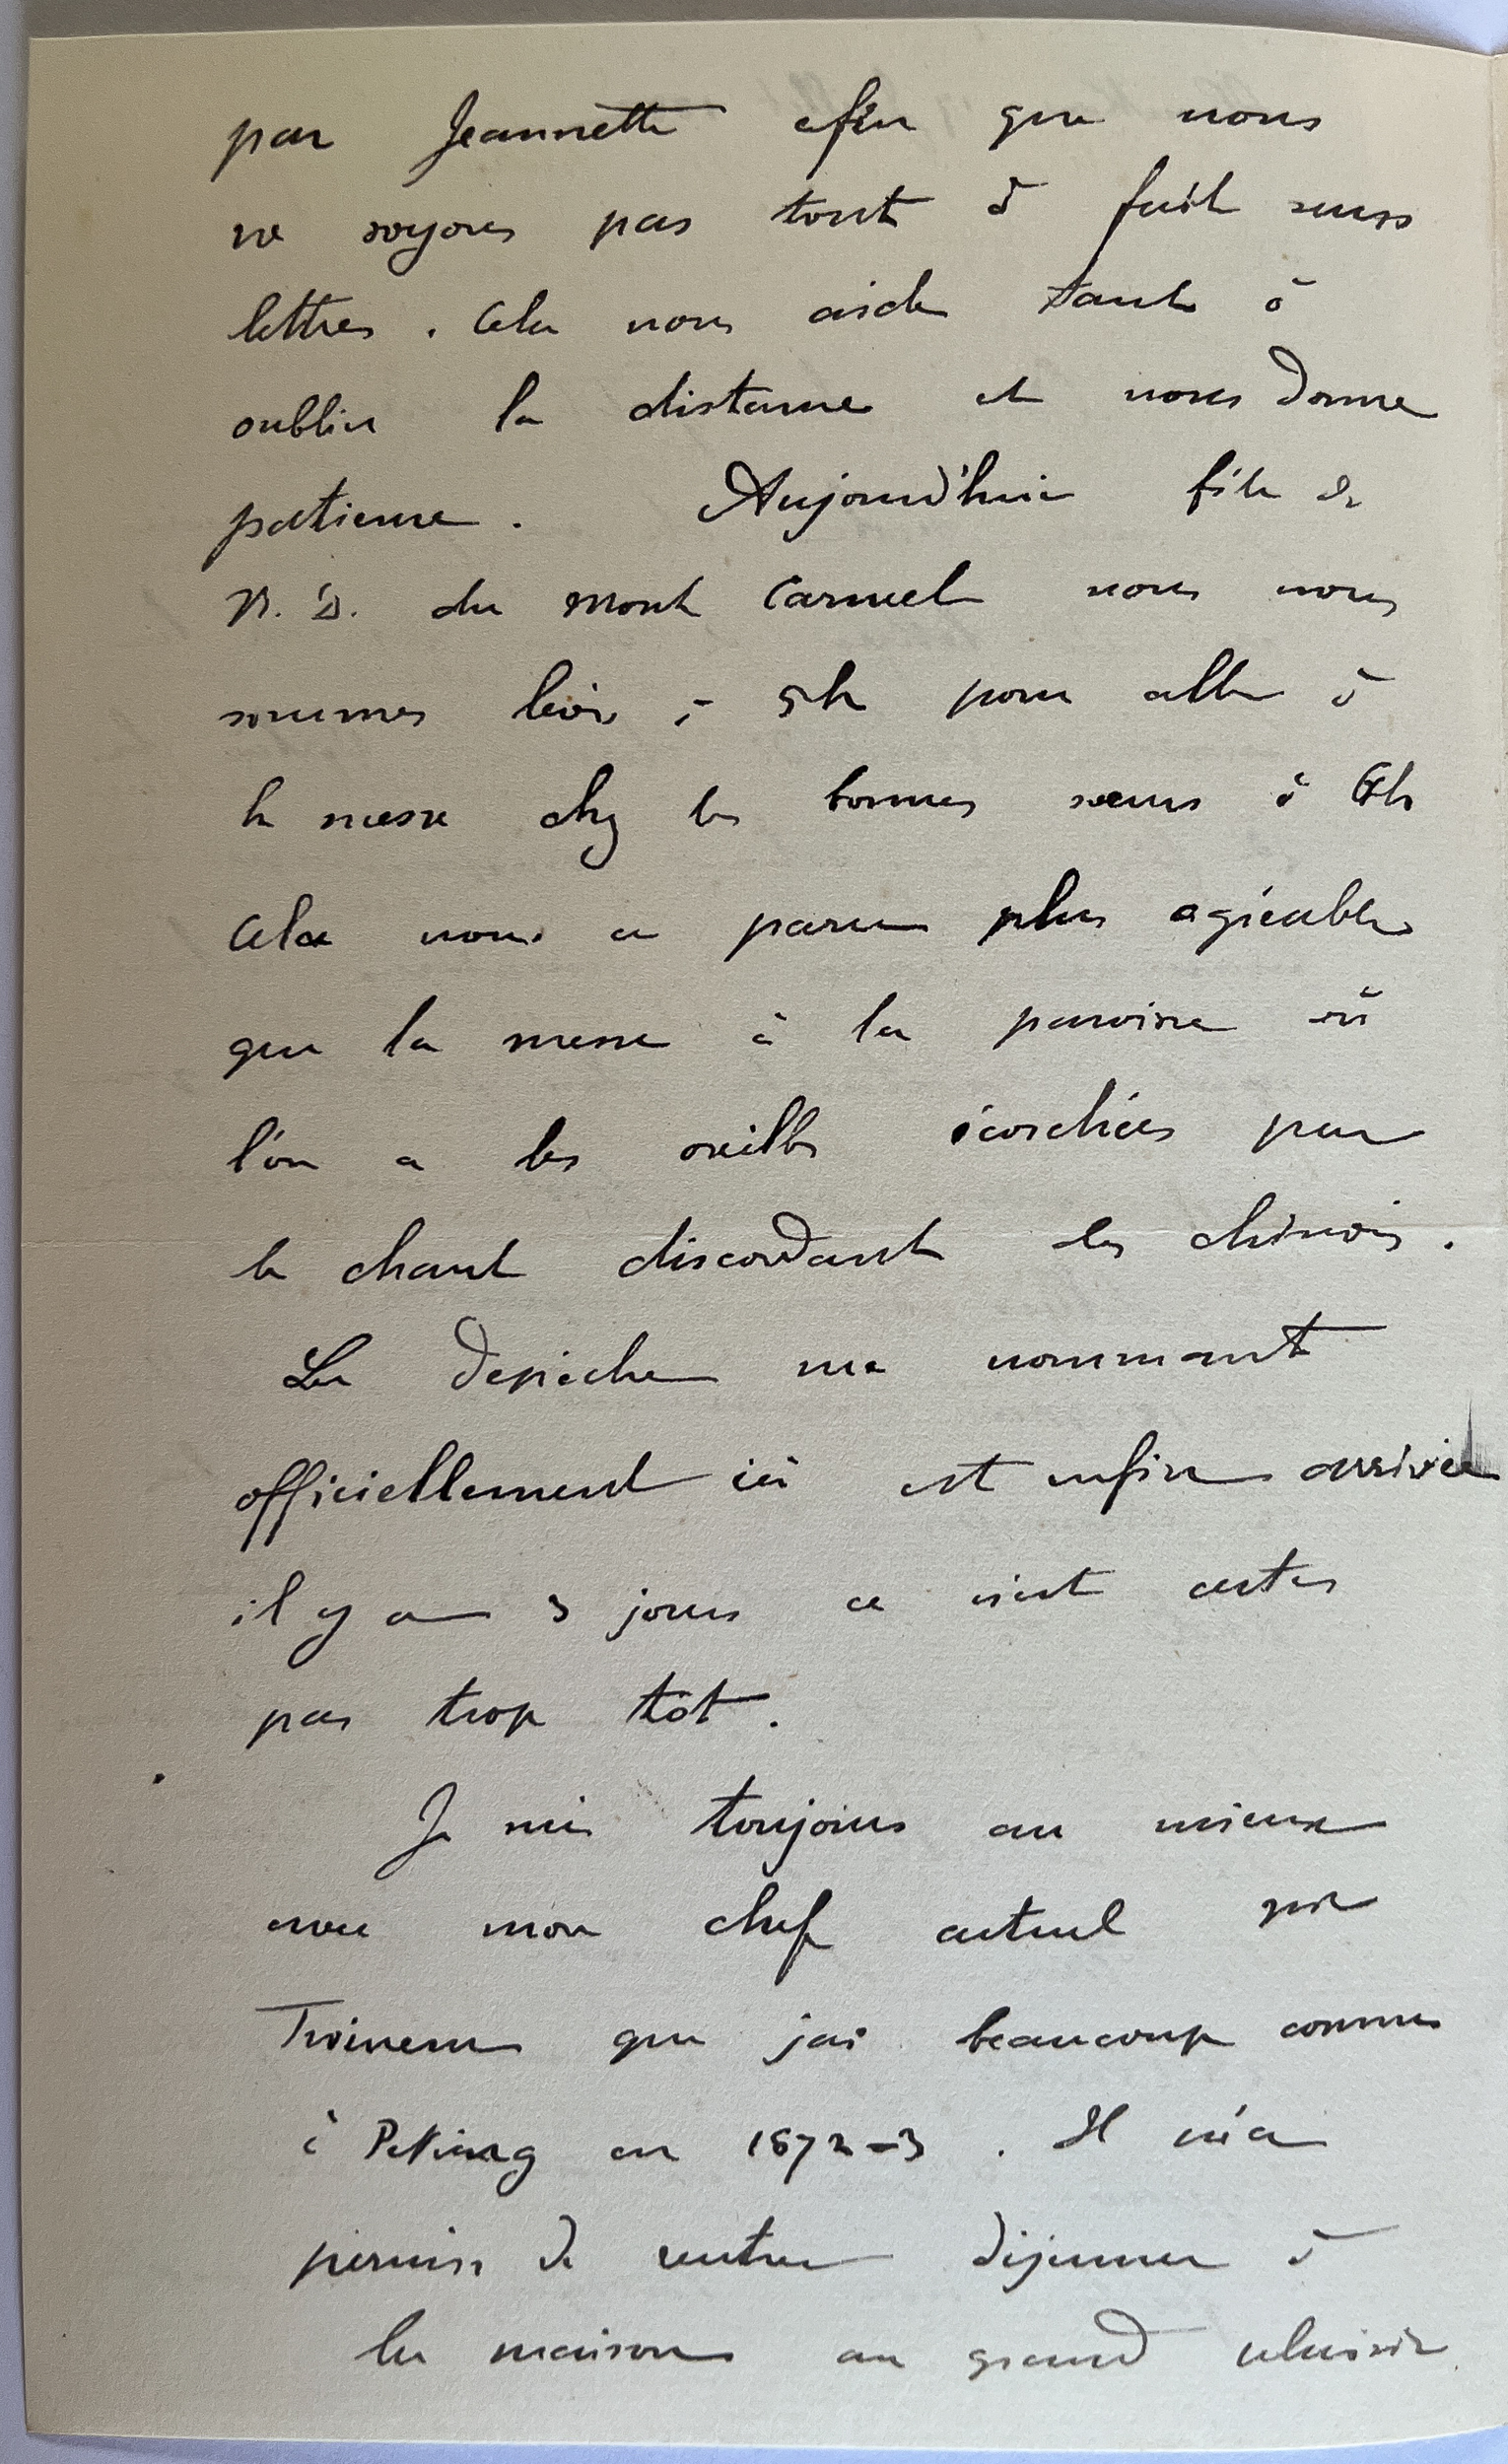 par Jeannette afin que nous
ne soyons pas tout à fait sans
lettres. Cela nous aide tant à
oublier la distance et nous donne
patience. Aujourd'hui fête de
N. D. du Mont Carmel nous nous
sommes levés à 5h pour aller à
la messe chez les bonnes sœurs à 6h
Cela nous a paru plus agréable
que la messe à la paroisse où
l'on a les oreilles écorchées par
le chant discordant des chinois.
La dépêche me nommant
officiellement ici est enfin arrivée
il y a 3 jours ce n'est certes
pas trop tôt.
Je suis toujours au mieux
avec mon chef actuel
que j'ai beaucoup connu
à Peking en 1872-3. Il m'a
permis de rentrer déjeuner à
la maison au grand plaisir